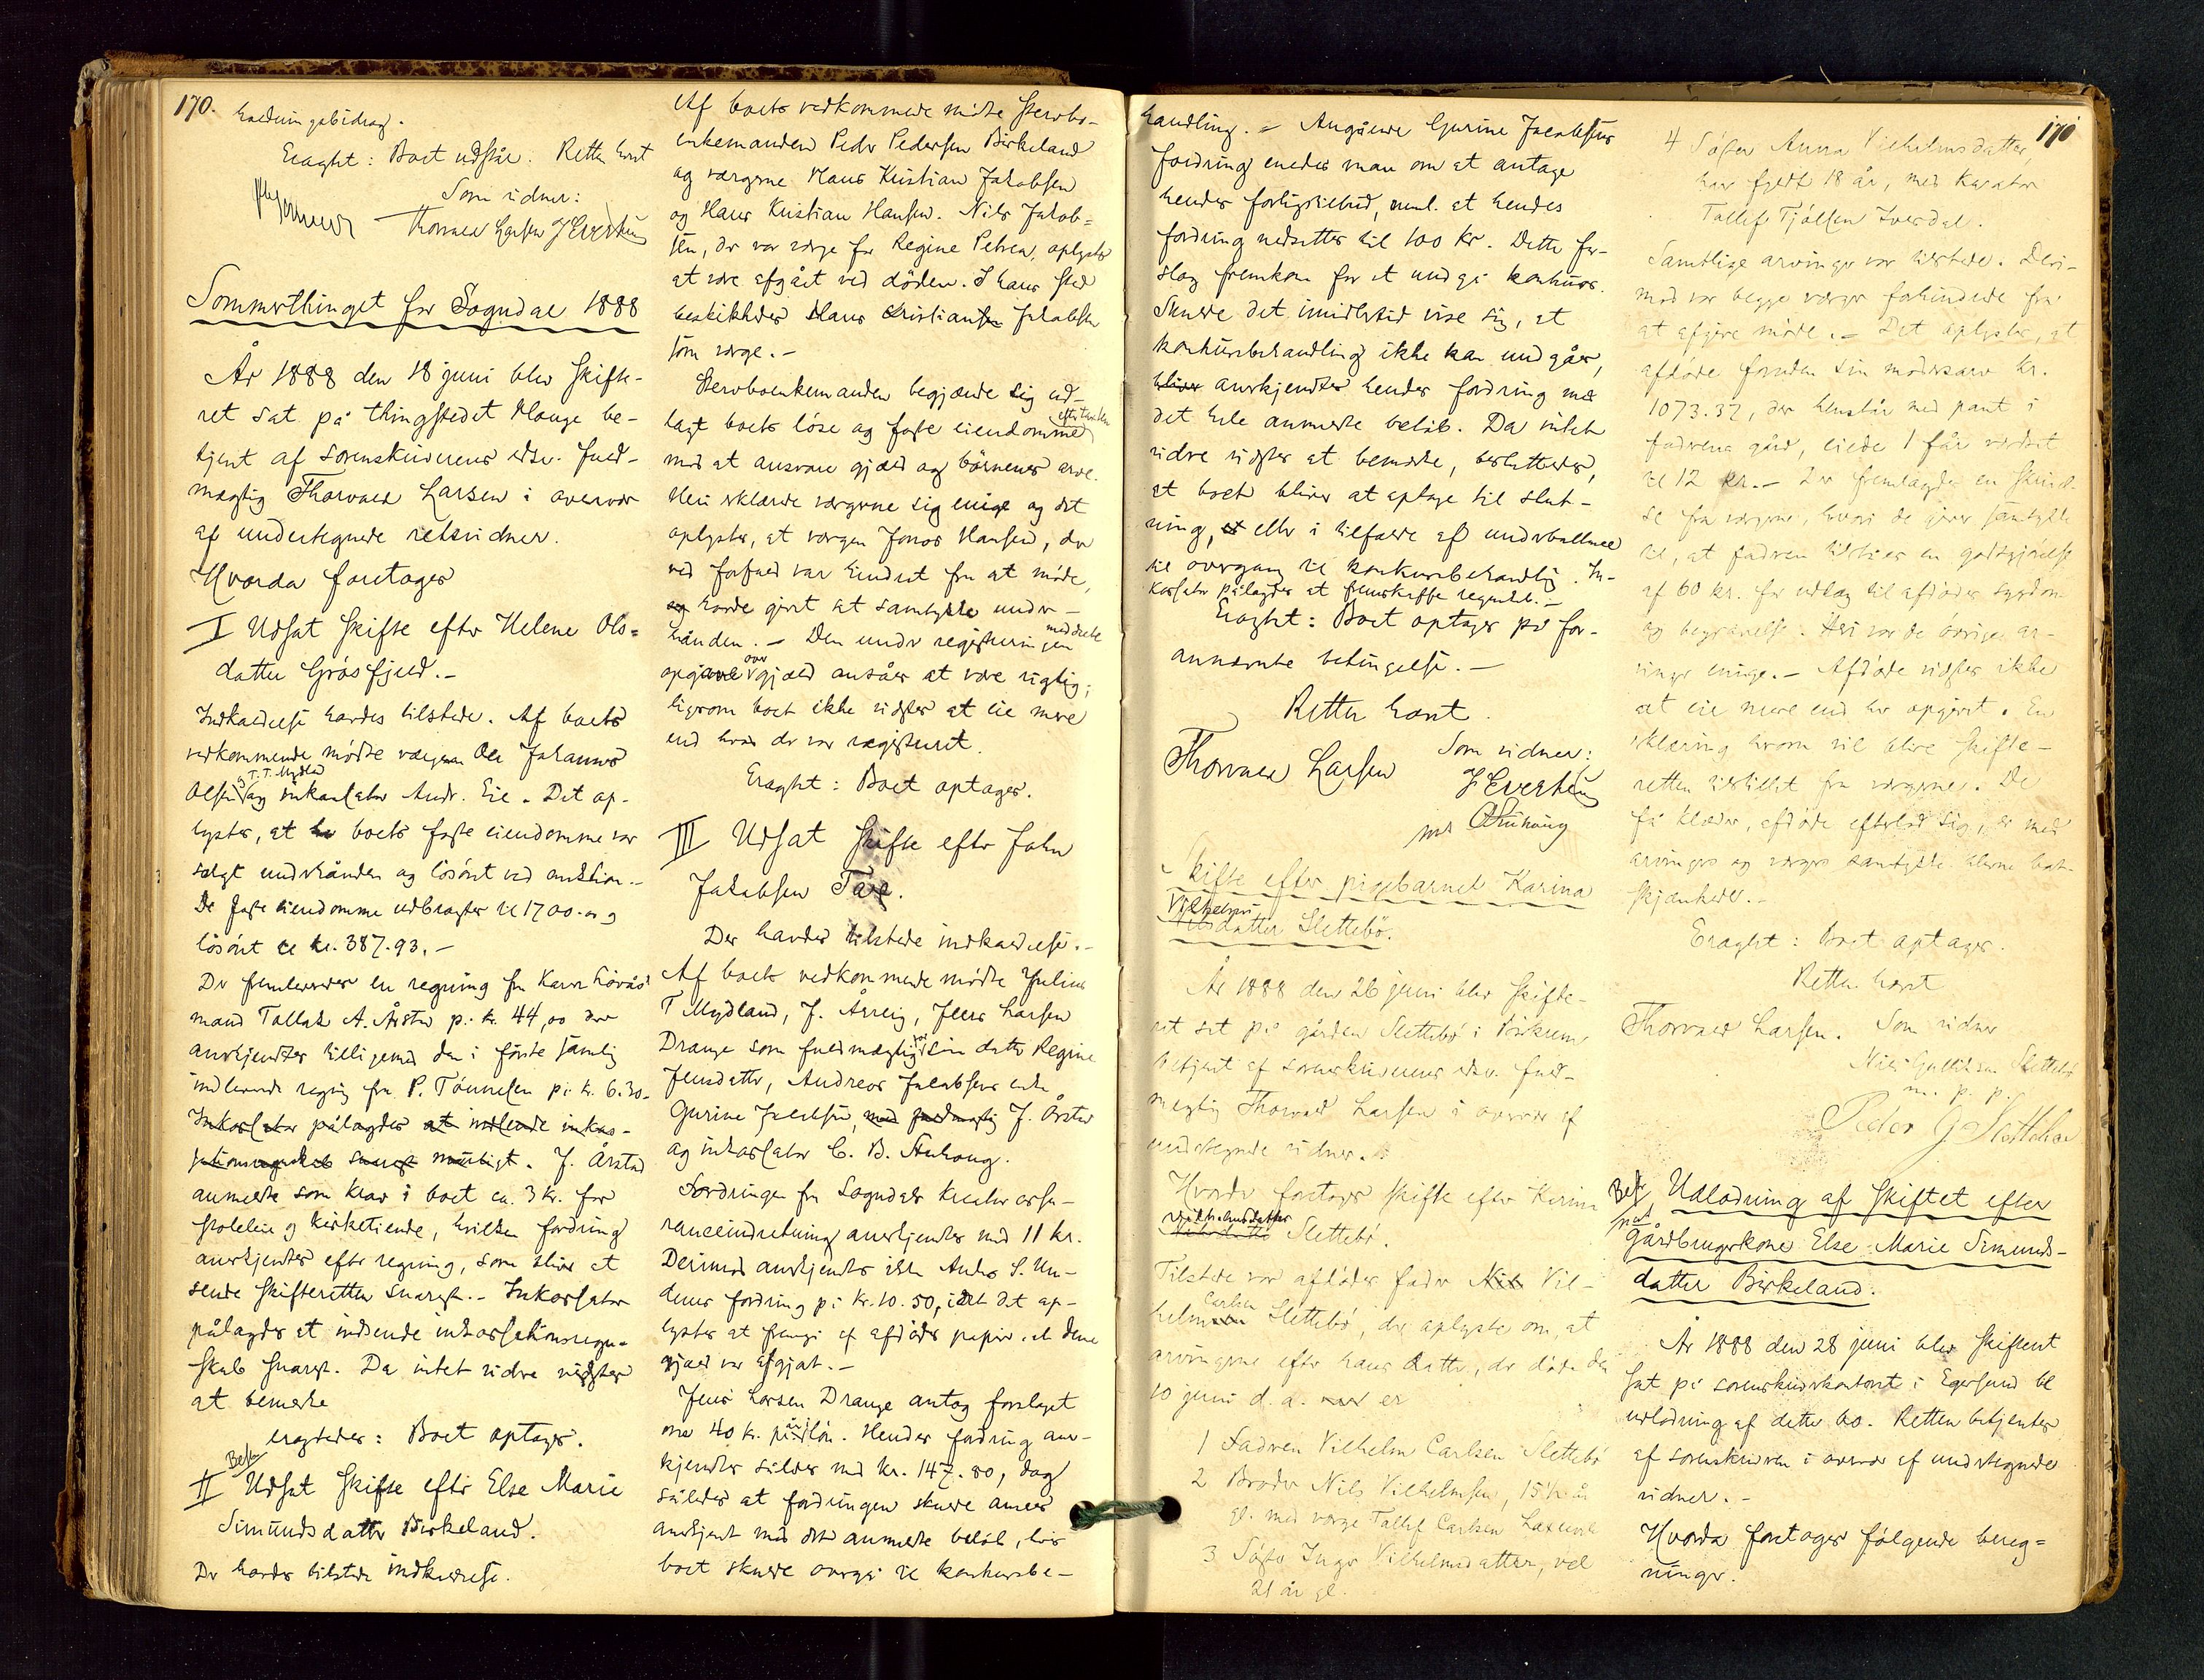 170.
holdningsbidrag.
Eragtet: Boet udstår. Retten hævet
Som vidner:
Thorvald Larsen
Sommerthinget for Sogndal 1888
År 1888 den 18 juni blev skifte-
ret sat på thingstedet Hauge be-
tjent af sorenskriverens edsv. fuld-
mægtig Thorvald Larsen i overvær
af undertegnede retsvidner.
Hvorda foretoges
I Udsat skifte efter Helene Ols-
datter Grøsfjeld.-
Indkaldelse havdes tilstede. Af boets
vedkommende mødte værgen Ole Johannes
Olsen og T. T. Mydland og inkassator Andr. Eie. Det op-
lystes, at boets faste eiendomme var
solgt underhånden og løsøret ved auktion.-
De faste eiendomme udbragtes til 1700.- og
løsøret til kr. 387.93.-
Der fremlevertes en regning fra
mand Tollak A. Årstad på kr. 44,00 der
anerkjendtes tilligemed den i første samling
indleverede regning fra P. Tønnesen på kr. 6.30.
Inkassator pålagdes at indsende inkas-
sationsregnskab snarest muligt. J. Årstad
anmeldte som krav i boet ca. 3 kr. for
stoleleie og kirketiende, hvilken fordring
anerkjendtes efter regning, som bliver at
sende skifteretten snarest.- Inkassator
pålagdes at indsende inkassationsregn-
skab snarest. Da intet videre vidstes
at bemerke
eragtedes: Boet optages.
II Udsat skifte efter Else Marie
Simundsdatter Birkeland.
Der havdes tilstede indkaldelse.
Af boets vedkommende mødte stervbo-
enkemanden Peder Pedersen Birkeland
og værgerne Hans Kristian Jakobsen
og Hans Kristian Hansen. Nils Jakob-
sen, der var værge for Regine Petrea, oplystes
at være afgået ved døden. I hans sted
beskikkedes Hans Kristian Jakobsen
som værge.-
Stervboenkemanden begjærede sig ud-
lagt boets løse og faste eiendomme
mod at ansvare gjæld og børnenes arve.
Heri erklærede værgerne sig enige og det
oplystes, at værgen Jonas Hansen, der
ved forfald var hindret fra at møde,
og havde givet at samtykke under-
hånden.- Den under registeringen
opgivne gjæld ansåes at være rigtig,
ligesom boet ikke vidstes at eie mere
end hvad der var registreret.
Eragtet: Boet optages.
III Udsat skifte efter John
Jakobsen
Der havdes tilstede indkaldelse.-
Af boets vedkommende mødte Julius
T Mydland, J. Årreig, Jens Larsen
Drange som fuldmægtig for sin datter Regine
Jensdatter, Andreas Jakobsens enke
Gurine Jacobsen, med fuldmægtig J. Årstad
og inkassator C. B. Stuhaug.
Fordringen fra Sogndals Kreaturassu-
ranceindretning anerkjendtes med 11 kr.
Derimod anerkjendtes ikke Anders S. Un-
dems fordring på kr. 10.50, idet det op-
lystes at fremgå af afdødes papirer at denne
gjæld var afgjort.-
Jens Larsen Drange antog forslaget
om 40 kr. på i løn. Hendes fordring aner-
kjendtes således med kr. 147.80, dog
således at fordringen skulde ansees
anerkjent med det anmeldte beløb, hvis
boet skulde overgå til konkursbe-
handling.- Angående Gurine Jacobsens
fordring enedes man om at antage
hendes forligstilbud, neml. at hendes
fordring nedsættes til 100 kr. Dette for-
slag fremkom for at undgå konkurs.
Skulde det imidlertid vise sig, at
konkursbehandling ikke kan undgåes,
bliver anerkjendtes hendes fordring med
det hele anmeldte beløb. Da intet
videre vidstes at bemerke, besluttedes,
at boet bliver at optage til slut-
ning, eller i tilfælde af underballance
til overgang til konkursbehandling. In-
kassator pålagdes at fremskaffe regnskab.-
Eragtet: Boet optages på for-
annævnte betingelse.-
Retten hævet.
Thorvald Larsen Som vidner:
Skifte efter pigebarnet Karina
Vilhelms
datter Slettebø.
År 1888 den 26 juni blev skifte-
ret sat på gården Slettebø i Birkrem,
betjent af sorenskriverens edsv. fuld-
mægtig Thorvald Larsen i overvær af
undertegnede vidner.
Hvorda foretoges skifte efter Karina
Vilhelmsdatter
Slettebø.
Tilstede var afdødes fader Nils Vil-
helm Carlsen Slettebø, der oplyste om, at
arvingerne efter hans datter, der døde den
10 juni d. a. er
1 Faderen Vilhelm Carlsen Slettebø
2 Broder Nils Vilhelmsen, 15½ år
gl. med værge Tallef Carlsen
3 Søster Inger Vilhelmsdatter, vel
21 år gl.
170
4 Søster Anna Vilhelmsdatter,
har fyldt 18 år, med kurator
Tallef Tjølsen Iversdal.
Samtlige arvinger var tilstede. Deri-
mod var begge værger forhindrede fra
at afgive møde.- Det oplystes, at
afdøde foruden sin mødrearv kr.
1073.32, der henstår med pant i
faderens gård, eiede 1 får værdsat
til 12 kr.- Der fremlagdes en skrivel-
se fra værgerne, hvori de giver samtykke
til, at faderen tilståes en godtgjørelse
af 60 kr. for udlæg til afdødes sygdom
og begravelse. Heri var de øvrige ar-
vinger enige.- Afdøde vidstes ikke
at eie mere end her opgivet. En
erklæring herom vil blive skifte-
retten tilstillet fra værgerne. De
få klæder, afdøde efterlod sig, er med
arvingers og værgers samtykke blevne bort-
skjænkede.-
Eragtet: Boet optages.
Retten hævet
Thorvald Larsen. Som vidner
m. p. p.
Peder G Slettebø
Udlodning af skiftet efter
gårdbrugerkone Else Marie Simunds-
datter Birkeland.
År 1888 den 28 juni blev skifteret
sat på sorenskriverkontoret i Egersund til
udlodning af dette bo. Retten betjentes
af sorenskriveren i overvær af undertegnede
vidner.-
Hvorda foretoges følgende bereg-
ninger.